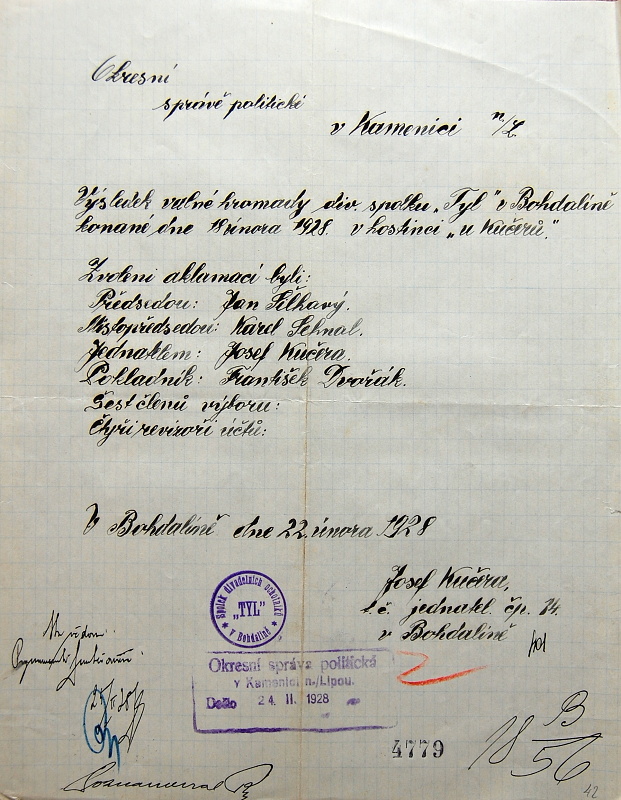 Okresní
správě politické
v Kamenici n/L.
Výsledek valné hromady div. spolku „Tyl" v Bohdalíně
konané dne 18 února 1928. v hostinci „u Kučerů."
Zvoleni aklamací byli:
Předsedou: Jan Šílhavý.
Místopředsedou: Karel Sehnal.
Jednatlem: Josef Kučera.
Pokladník: František Dvořák.
Šest členů výboru:
Čtyři revizoři účtů:
V Bohdalíně dne 22. února 1928
Josef Kučera,
t. č. jednatel. čp. 14.
v Bohdalíně
Spolek divadelních ochotníků
„TYL"
v Bohdalíně
Okresní správa politická
v Kamenici n./Lipou.
Došlo 24. II. 1928
4779
18 B/56
42